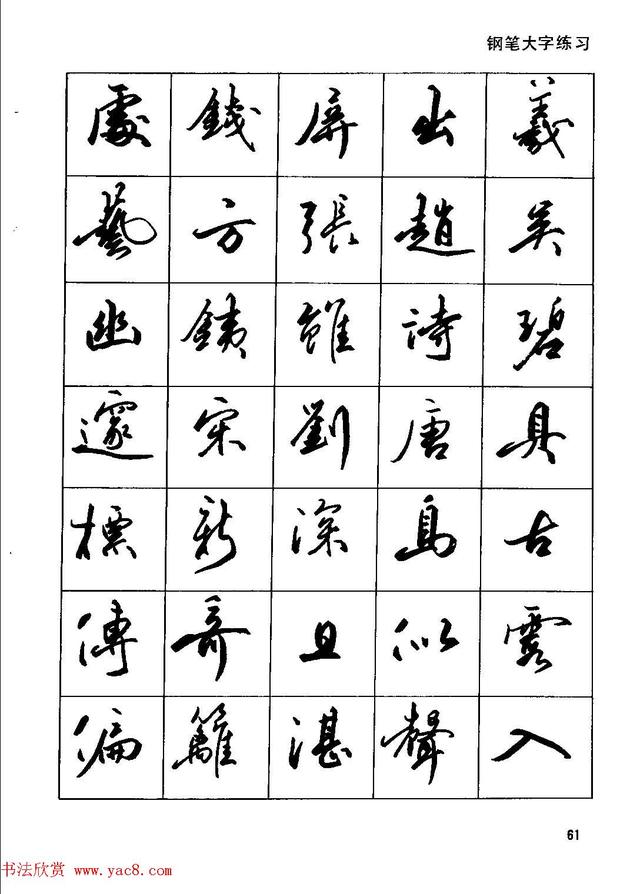 钢笔大字练习
處 錢 屏 出 羲
藝 方 張 趙 吴
幽 銕 雖 詩 碧
邃 宋 劉 唐 具
標 新 深 島 古
傳 奇 且 似 露
偏 籬 湛 聲 入
61
书法欣赏 www.yac8.com